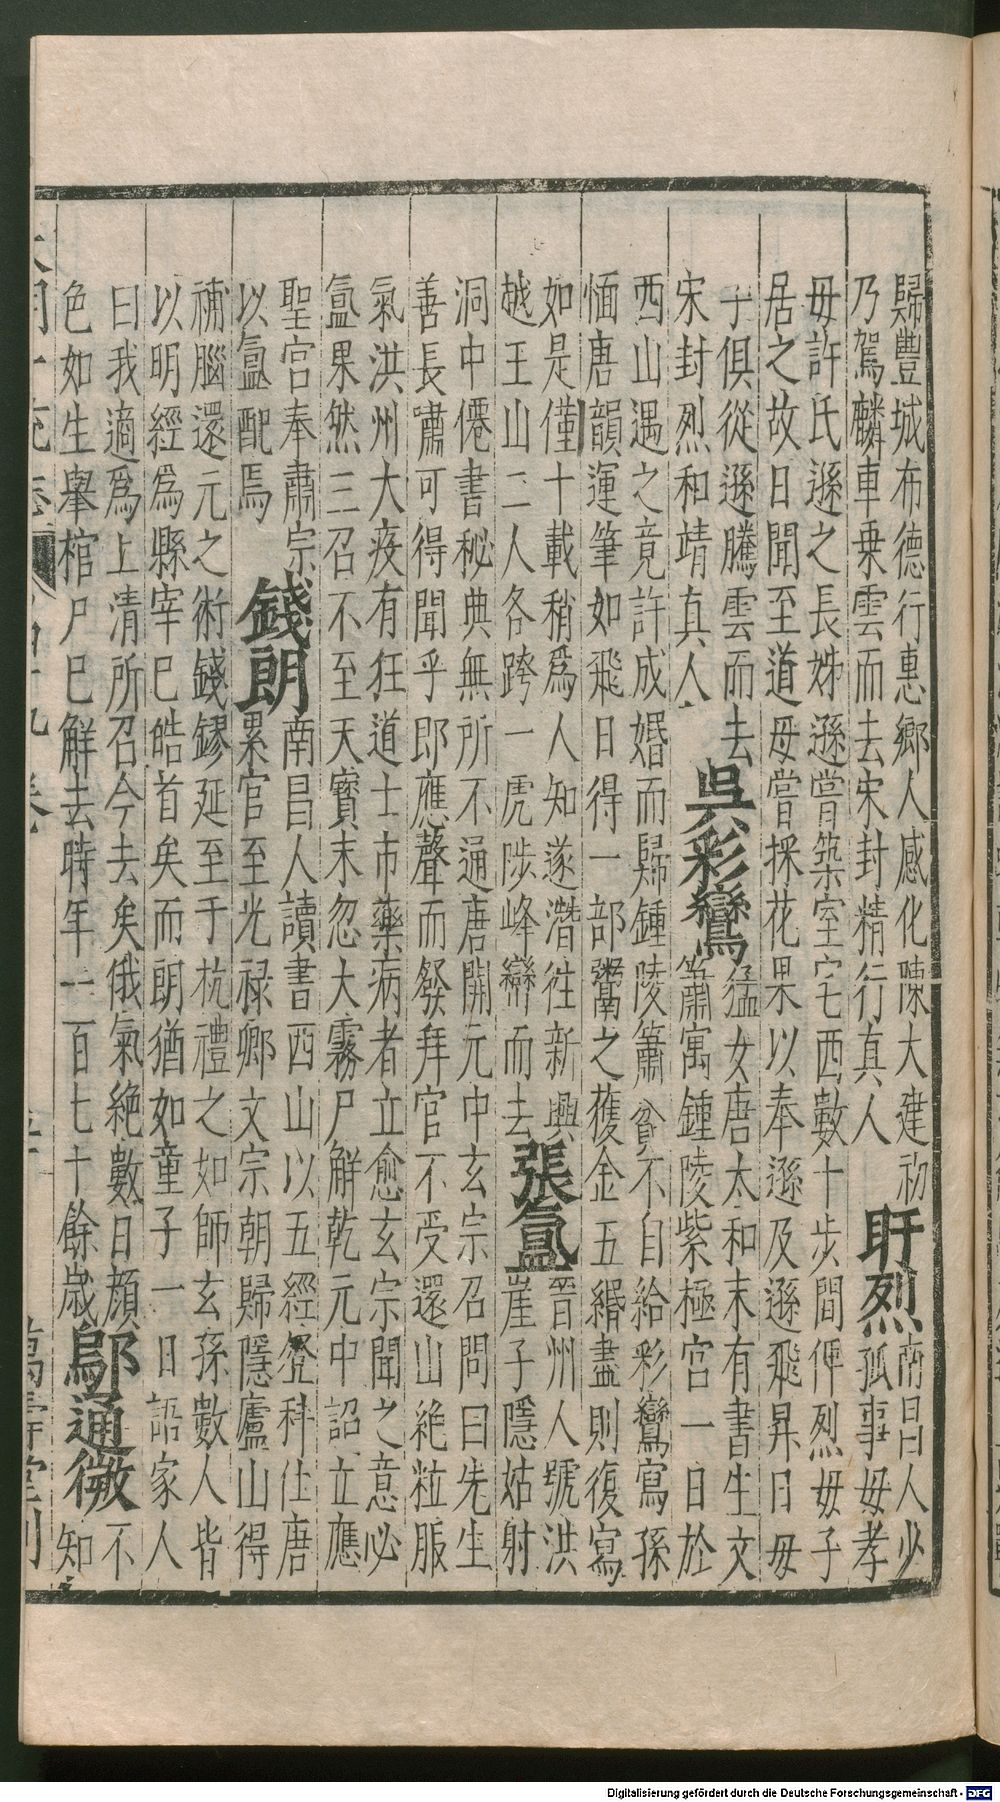 歸豐城布德行惠鄉人感化陳大建初
乃駕麟車乗雲而去宋封精行真人
盱烈
南昌人少
孤事母孝
母許氏遜之長姊遜嘗築室宅西數十步間俾烈母子
居之故日聞至道母嘗採花果以奉遜及遜飛昇日母
子俱從遜騰雲而去
宋封烈和靖真人
吳彩鸞
猛女唐太和末有書生文
簫寓鍾陵紫極宮一日於
西山遇之竟許成婚而歸鍾陵簫貧不自給彩鸞寫孫
愐唐韻運筆如飛日得一部鬻之獲金五緡盡則復寫
如是僅十載稍爲人知遂潜徃新興
越王山二人各跨一虎陟峰巒而去
張氳
晉州人號洪
崖子隱姑射
洞中僊書秘典無所不通唐開元中玄宗召問曰先生
善長嘯可得聞乎即應聲而發拜官不受還山絶粒服
氣洪州大疫有狂道士市藥病者立愈玄宗聞之意必
氳果然三召不至天寶末忽大霧尸解乾元中詔立應
聖宫奉肅宗
以氳配焉
錢朗
南昌人讀書西山以五經登科仕唐
累官至光禄卿文宗朝歸隱廬山得
補腦還元之術錢鏐延至于杭禮之如師玄孫數人皆
以明經爲縣宰已皓首矣而朗猶如童子一日語家人
曰我適爲上清所召今去矣俄氣絶數日顔
色如生舉棺尸已解去時年一百七十餘歲
鄔通微
不
知
萬壽堂刊
Digitalisierung gefördert durch die Deutsche Forschungsgemeinschaft - DFG